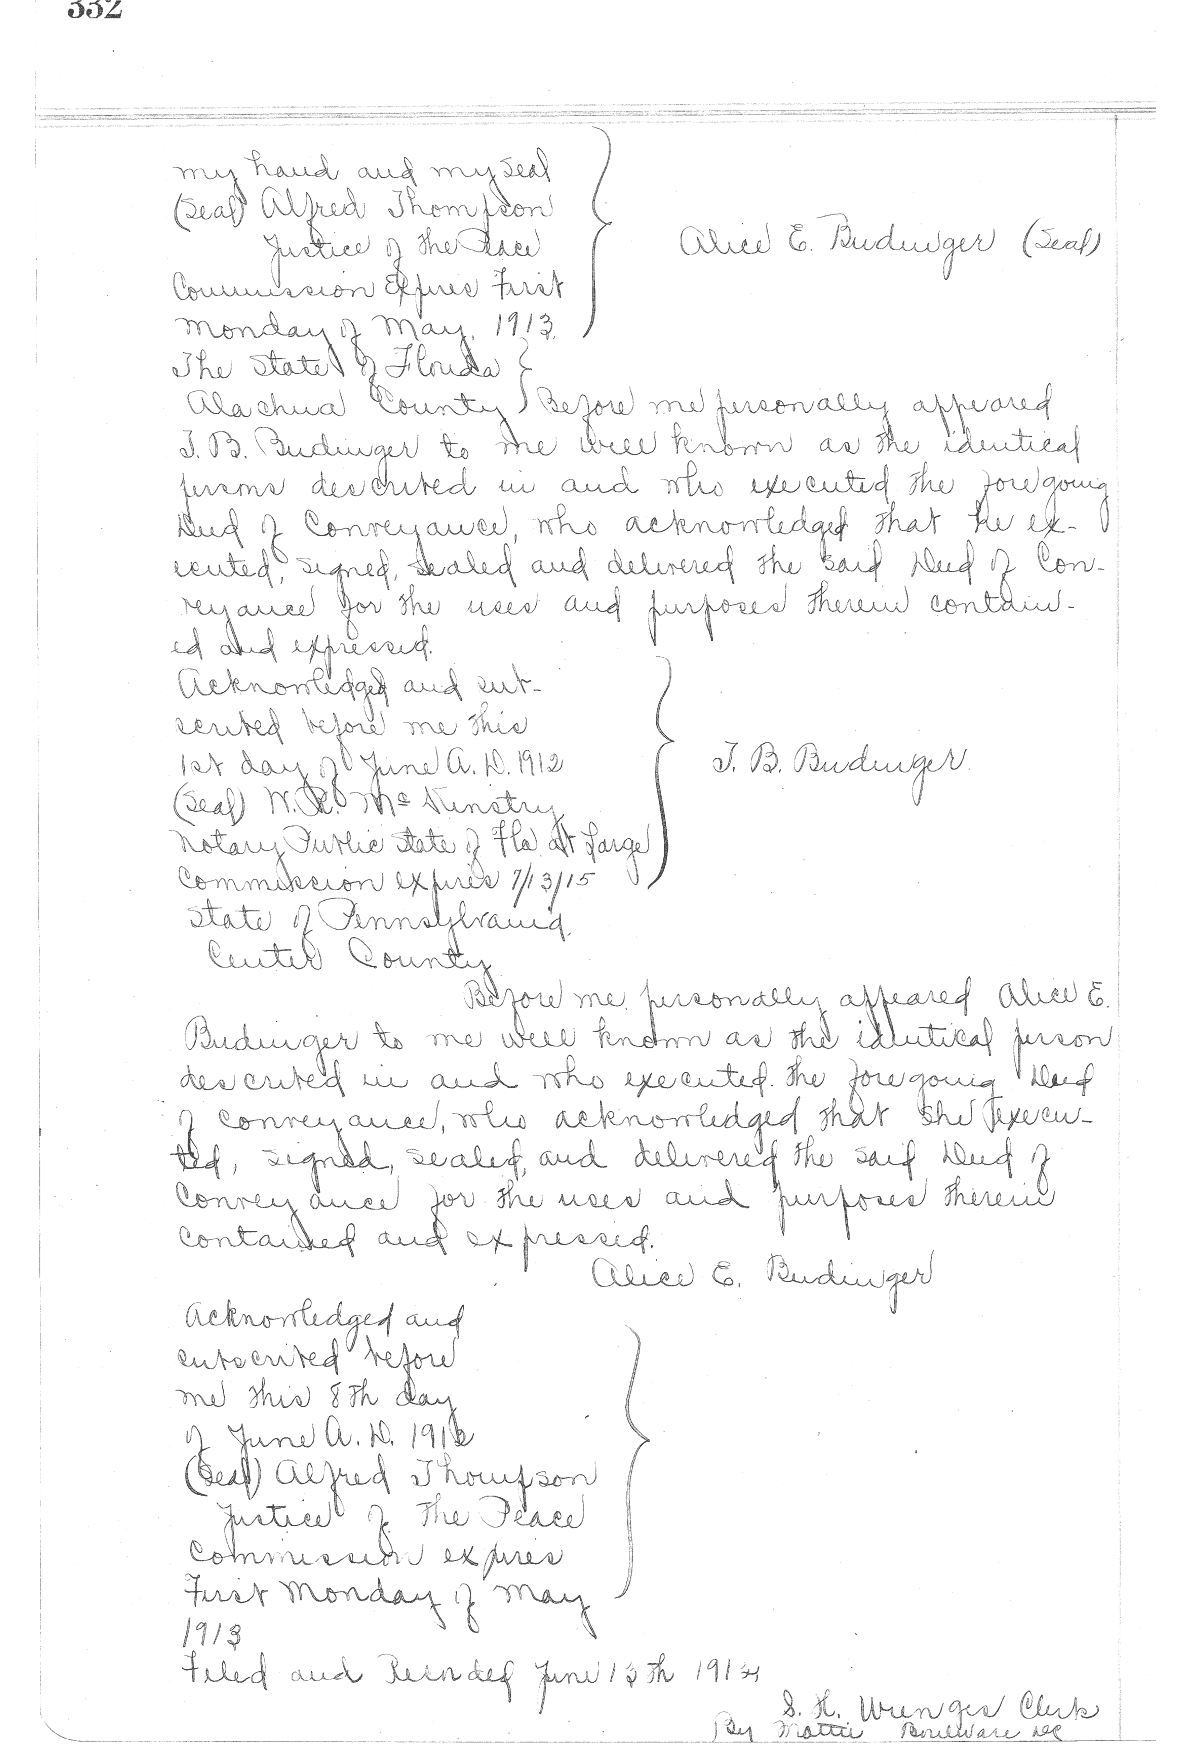 332
my hand and my seal
(Seal) Alfred Thompson
Justice of the Peace
Commission Expires First
Monday of May, 1913.
Alice E. Budinger (Seal)
The State of Florida
Alachua County Before me personally appeared
T. B. Budinger to me well known as the identical
persons described in and who executed the foregoing
Deed of Conveyance, who acknowledged that he ex-
ecuted, signed, sealed and delivered the said Deed of Con-
veyance for the uses and purposes therein contain-
ed and expressed.
Acknowledged and sub-
scribed before me this
1st day of June A.D. 1912
(Seal) W. R. McKinstry
Notary Public State of Fla at Large
Commission expires 7/13/15
T. B. Budinger.
State of Pennsylvania.
Center County
Before me personally appeared Alice E.
Budinger to me well known as the identical person
described in and who executed the foregoing Deed
of Conveyance, who acknowledged that she execu-
ted, signed, sealed, and delivered the said Deed of
Conveyance for the uses and purposes therein
contained and expressed.
Alice E. Budinger
Acknowledged and
subscribed before
me this 8th day
of June A.D. 1912
(Seal) Alfred Thompson
Justice of the Peace
Commission expires
First Monday of May
1913
Filed and Recorded June 13th 1912
S. H. Wienges Clerk
By Mattie Boulware DC